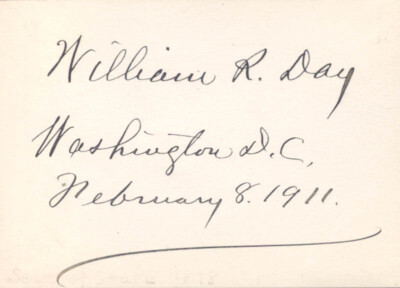 William R. Day
Washington D.C,
February 8. 1911.